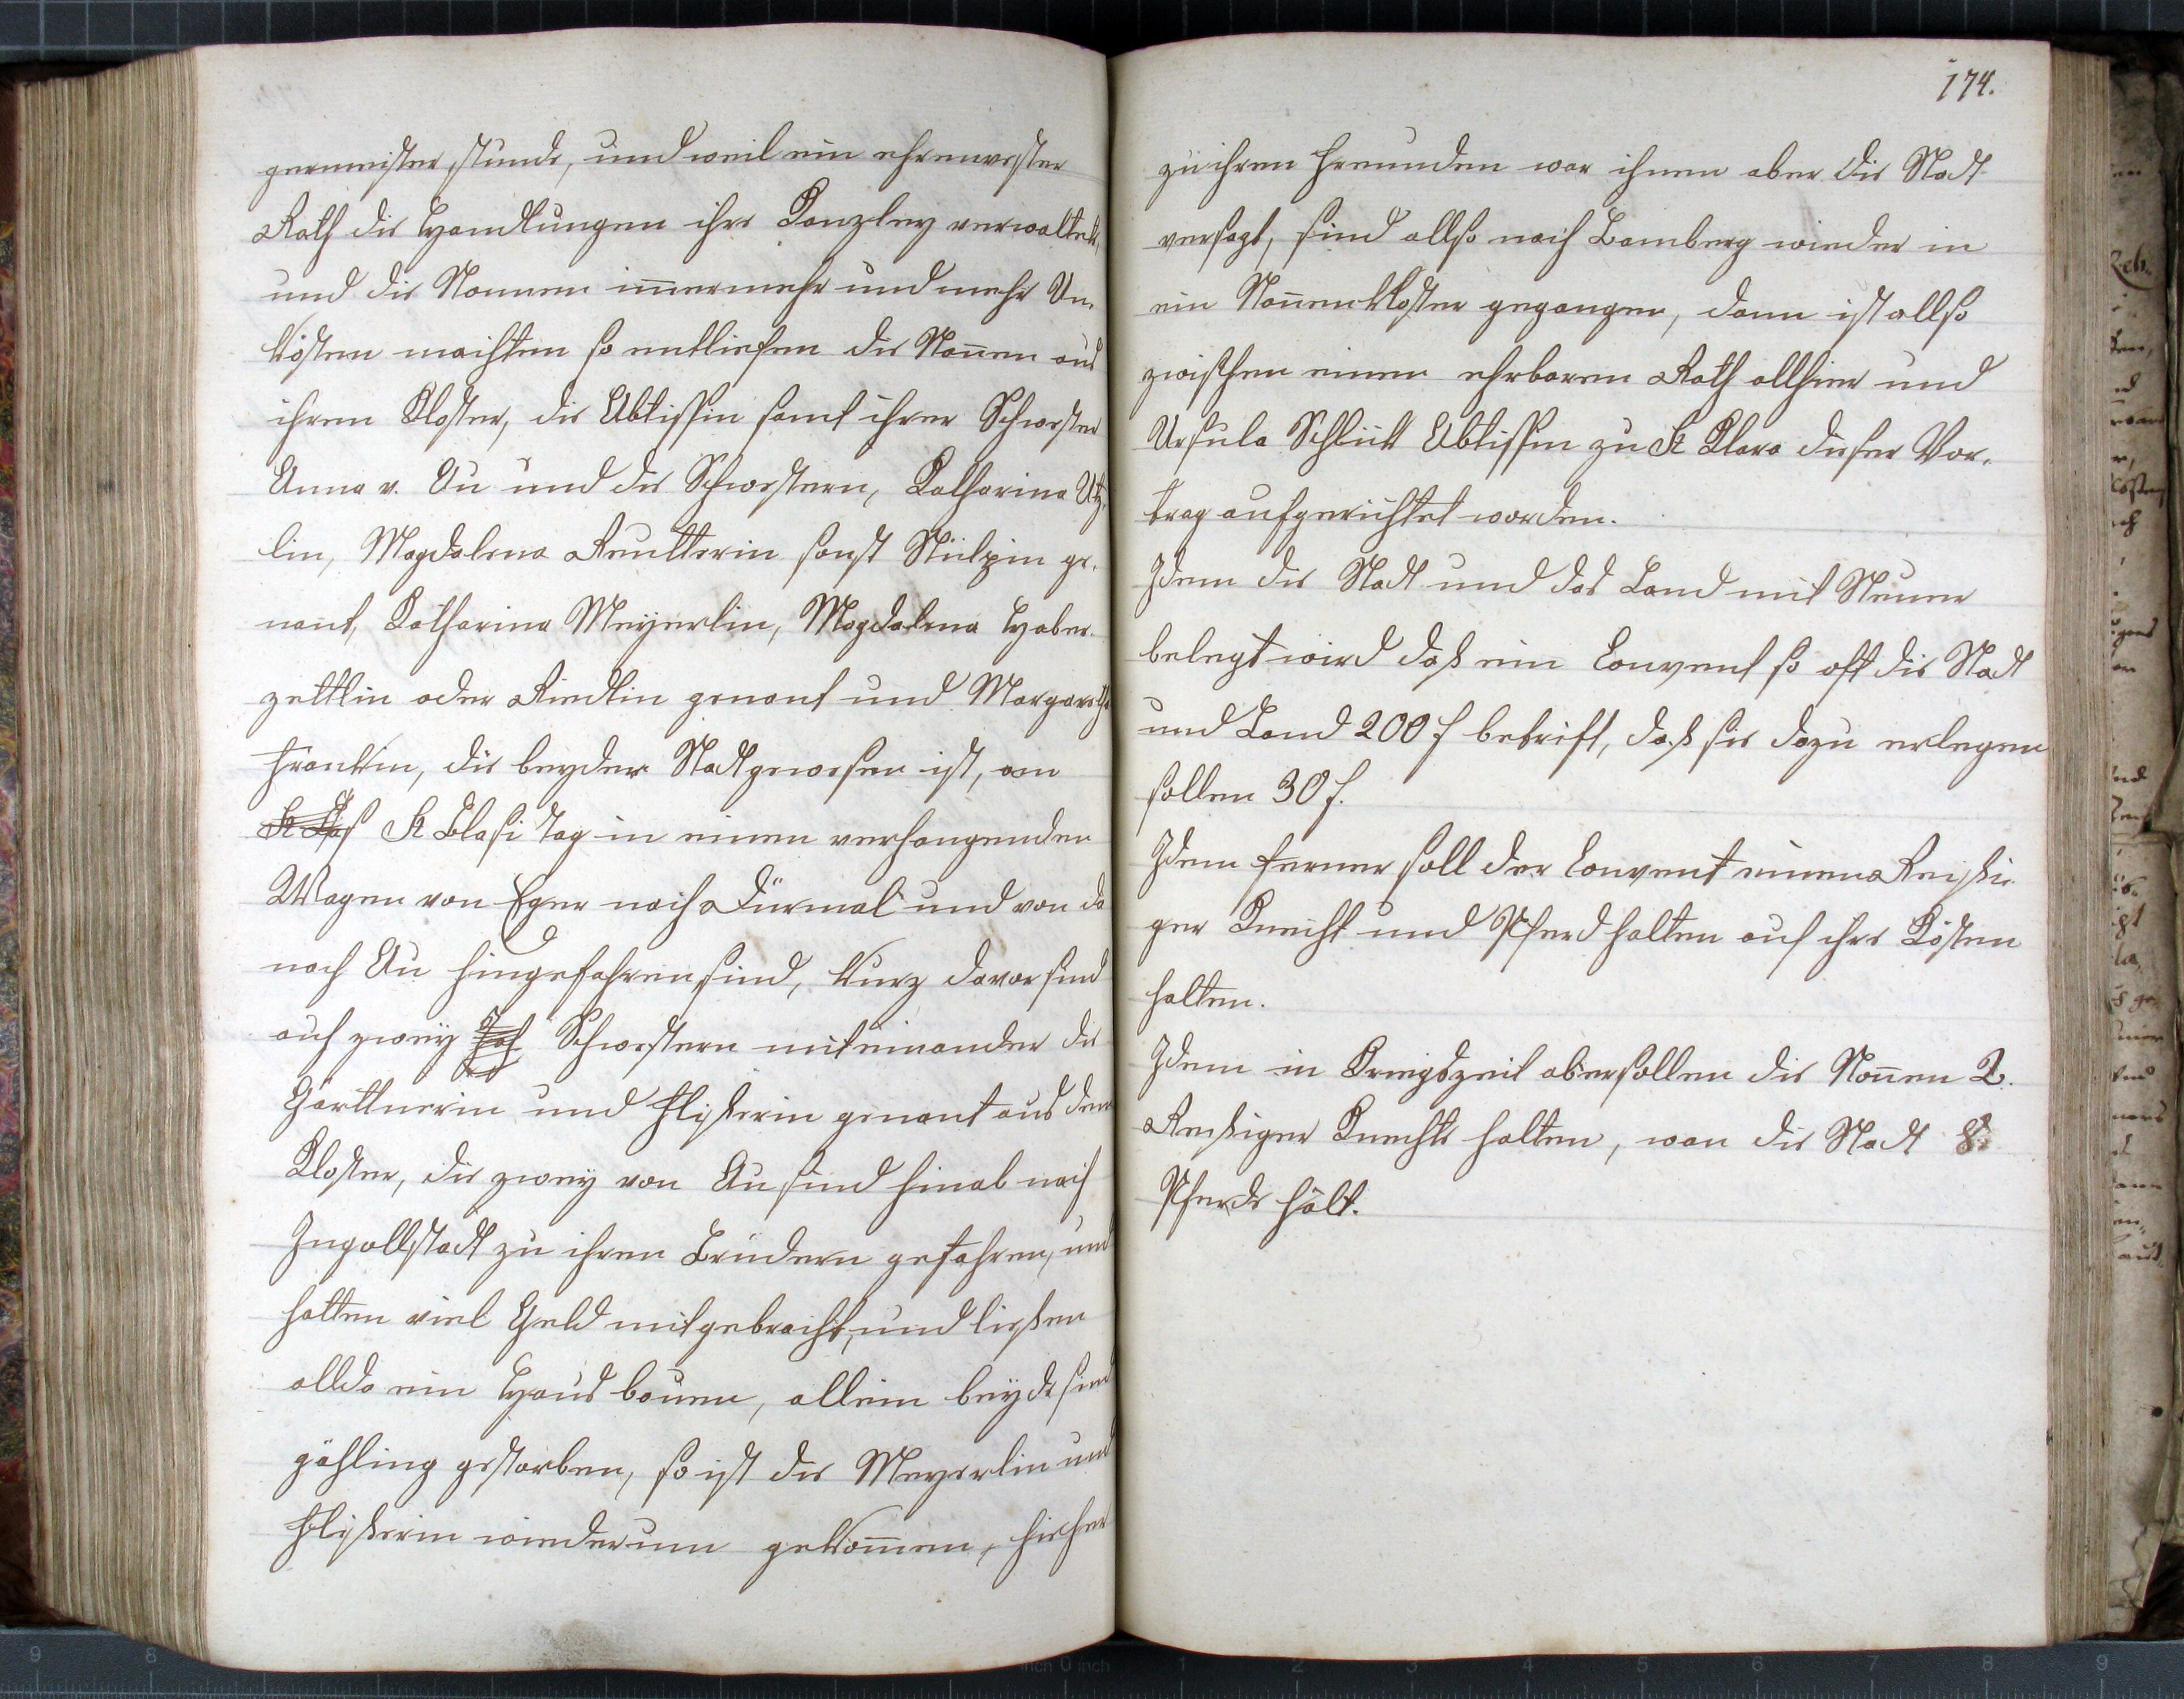 germeister stunde, und weil ein ehrenvester
Rath die Handlungen ihre Kanzley verwaltete,
und die Nonnen im̄ermehr und mehr Un-
kösten machten so entliefen die Non̄en aus
ihren Kloster, die Abtissin samt ihrer Schwester
Anna v. Au und die Schwestern, Katharina Utz-
lin, Magdalena Reutterin sonst Stülpin ge-
nant, Katharina Meyerlin, Magdalena Haber-
zettlin oder Riedlin genant und Margaretha
Fränkin, die beyder Stadt gewesen ist, am
St Blasi Tag in einen verhangenden
Wagen von Eger nach Dürmal und von da
nach Au hingefahren sind, kurz davor sind
auch zwey Schwestern miteinander die
Gärttnerin und Flißerin genant aus den
Kloster, die zwey von Au sind hinab nach
Ingollstadt zu ihren Brüdern gefahren, und
hatten viel Geld mitgebracht, und ließen
allda ein Haus bauen, allein beyde sind
gähling gestorben, so ist die Meyerlin und
Flißerin wiederum gekom̄en, hieher
174.
zu ihren Freunden war ihnen aber die Stadt
versagt, sind allso nach Bamberg wieder in
ein Non̄enkloster gegangen, dann ist allso
zwischen einen ehrbaren Rath allhier und
Ursula Schlück Abtissin zu St Klara dieser Ver-
trag aufgerichtet worden.
Idem die Stadt und das Land mit Steuer
belegt wird daß ein Convent so oft die Stadt
und Land 200 f betrift, daß sie dazu erlegen
sollen 30 f.
Idem ferner soll der Convent einen Reißi-
ger Knecht und Pferd halten auf ihre Kösten
halten.
Idem in Kriegszeit aber sollen die Non̄en 2.
Reißiger Knechte halten, wan die Stadt 8.
Pferde hält.